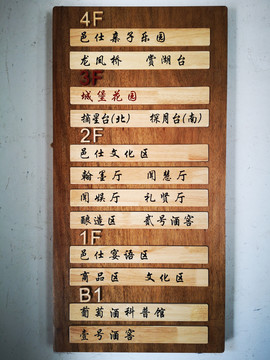 4F
邑仕桌子乐园
龙凤桥 赏湖台
3F
城堡花园
摘星台(北) 探月台(南)
2F
邑仕文化区
翰墨厅 闻慧厅
闻娱厅 礼贤厅
酿造区 贰号酒窖
1F
邑仕宴语区
商品区 文化区
B1
葡萄酒科普馆
壹号酒窖